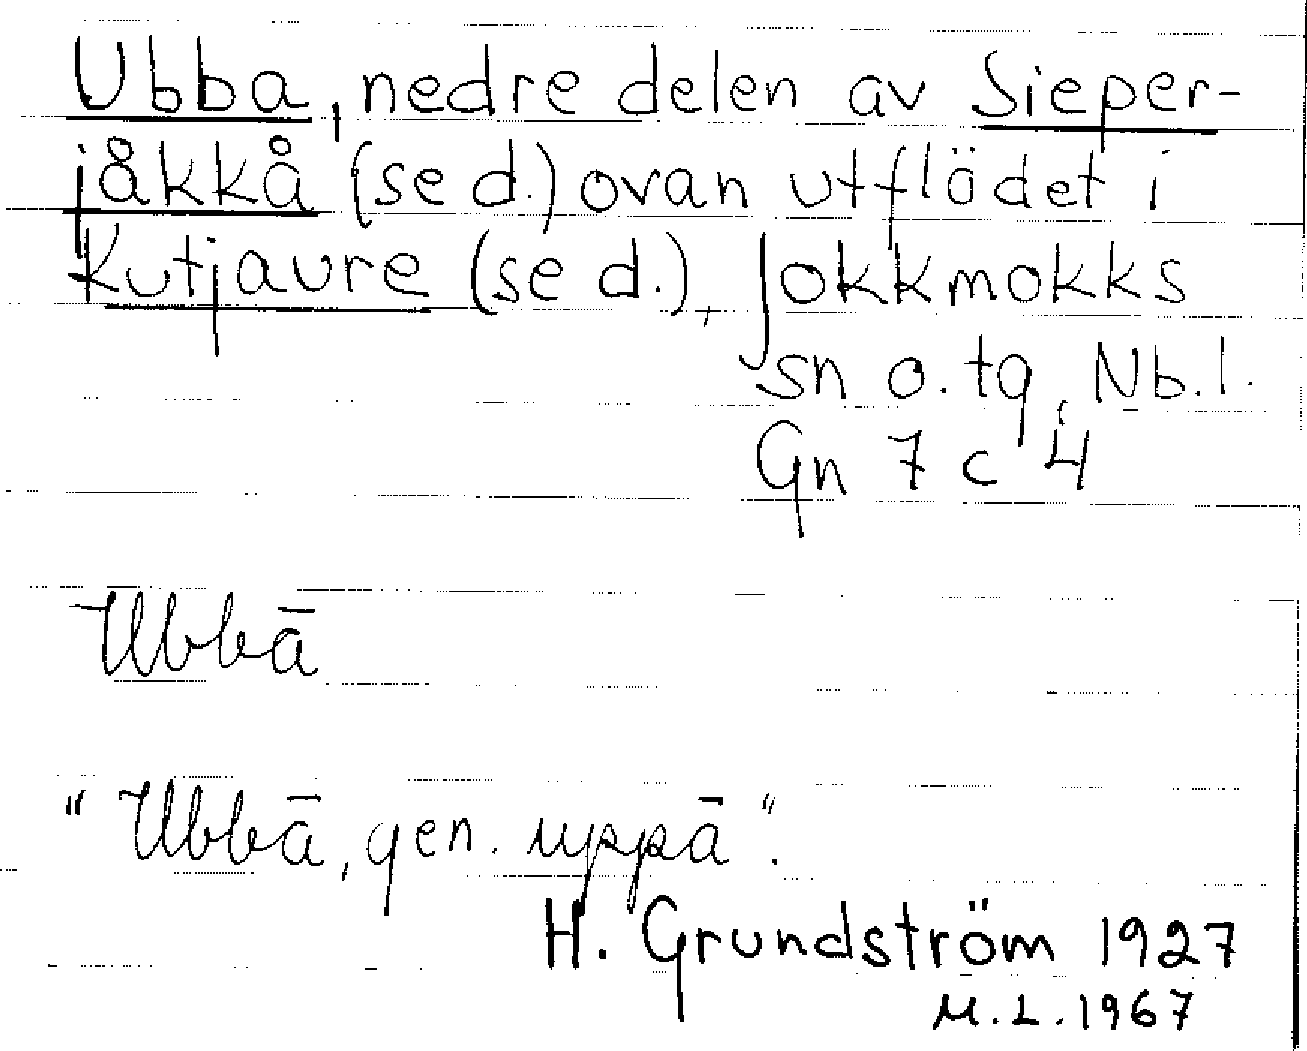 Ubba, nedre delen av Sieper-
jåkkå (se d.) ovan utflödet i
Kutjaure (se d.), Jokkmokks
sn o. tg, Nb.l.
Gn 7 c 4
Ubbā
"Ubbā, gen. uppā".
H. Grundström 1927
M.L.1967